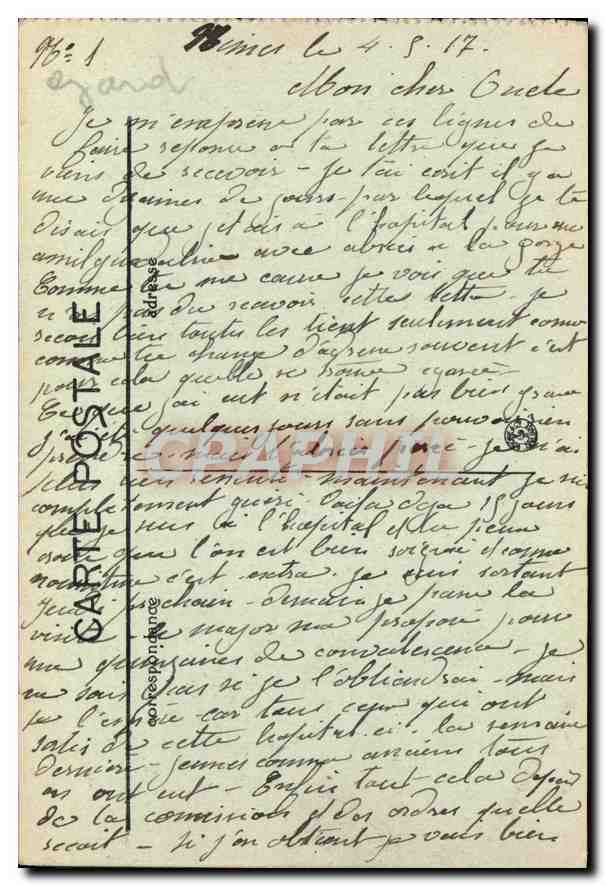 N° 1 Nimes le 4.5.17.
egaré
Mon cher Oncle
Je m'empresse par ces lignes de
faire reponse a ta lettre que je
viens de recevoir - Je t'ai ecrit il y a
une dizaines de jours par laquel je te
disais que j'etais à l'hopital pour une
amilgdalite avec abscès a la gorge
Comme tu me cause je vois que tu
n'a pas du recevoir cettes lettre - Je
recois bien toutes les tient seulement comme
comme tu change d'adresse souvent c'est
pour cela qu'elle se trouve egaré -
Ce que j'ai eut n'était pas bien grave
j'ai quelques jours sans pouvoir rien
prendre mais l'abscès percé je n'ai
plus rien ressenti - maintenant je suis
completement gueri. Voila deja 15 jours
que je suis à l'hopital et tu peux
croire que l'on est bien soigné et comme
nourriture c'est extra. Je suis sortant
Jeudi prochain - demain je passe la
visite - le major ma proposé pour
une quinzaines de convalescence - Je
ne sais pas si je l'obtiendrai - mais
je l'espère car tous ceux qui ont
sortis de cette hopital-ci la semaine
derniere - jeunes comme anciens tous
en ont eut - Enfin tout cela depend
de la commission et des ordres quelle
recoit - si j'en obtient je vous bien
CARTE POSTALE
adresse
correspondance
CPAPHIL